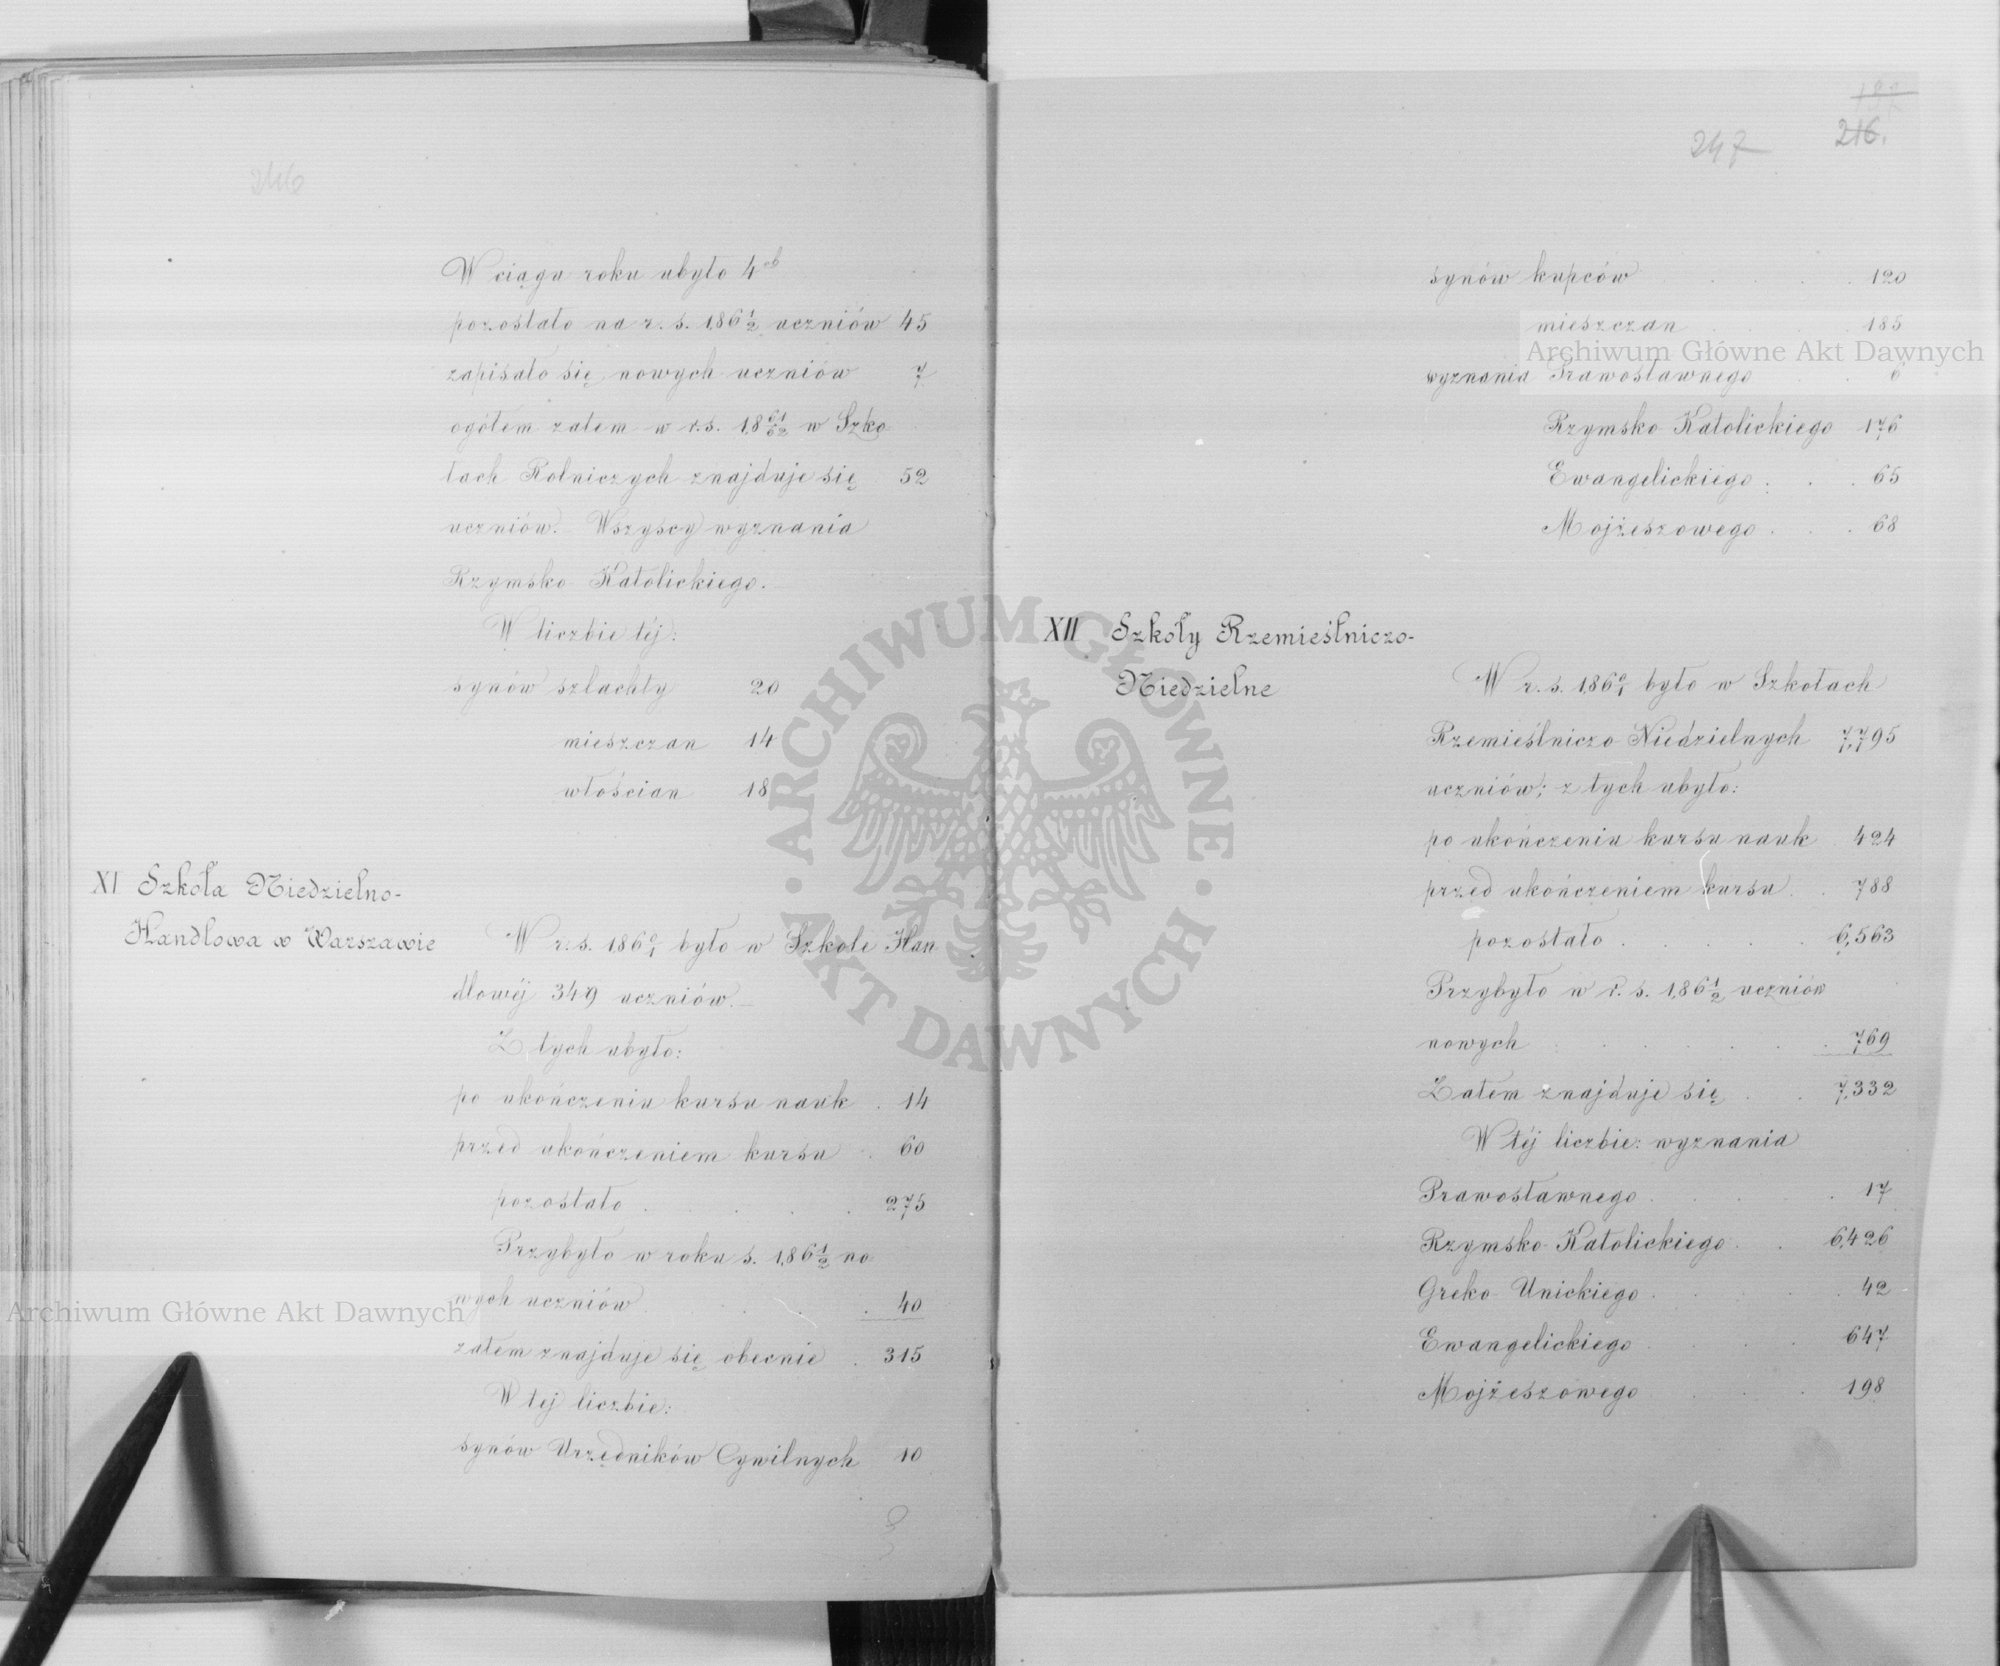 246
W ciągu roku ubyło 4ch
pozostało na r. s. 186½ uczniów 45
zapisało się nowych uczniów 7
ogółem zatem w r. s. 18 61/62 w Szko-
łach Rolniczych znajduje się 52
uczniów. Wszyscy wyznania
Rzymsko-Katolickiego.
W liczbie téj:
synów szlachty 20
mieszczan 14
włościan 18
XI Szkoła Niedzielno-
Handlowa w Warszawie
W r. s. 186 0/1 było w Szkole Han
dlowéj 349 uczniów.
Z tych ubyło:
po ukończeniu kursu nauk . 14
przed ukończeniem kursu . 60
pozostało . . . . 275
Przybyło w roku s. 186½ no-
wych uczniów . . . . 40
zatem znajduje się obecnie . 315
W tej liczbie:
synów Urzędników Cywilnych 10
247 216.
synów kupców . . . . 120
mieszczan . . . . 185
wyznania Prawosławnego . . 6
Rzymsko Katolickiego 176
Ewangelickiego . . . 65
Mojżeszowego . . . 68
XII Szkoły Rzemieślniczo-
Niedzielne
W r. s. 186 0/1 było w Szkołach
Rzemieślniczo Niedzielnych 7,795
uczniów; z tych ubyło:
po ukończeniu kursu nauk . 424
przed ukończeniem kursu . . 788
pozostało . . . . . 6,563
Przybyło w r. s. 186½ uczniów
nowych . . . . . . 769
Zatem znajduje się . . 7,332
W téj liczbie: wyznania
Prawosławnego . . . . 17
Rzymsko-Katolickiego . . 6,426
Greko-Unickiego . . . . 42
Ewangelickiego . . . . 647
Mojżeszowego . . . 198
Archiwum Główne Akt Dawnych
Archiwum Główne Akt Dawnych
ARCHIWUM GŁÓWNE • AKT DAWNYCH •